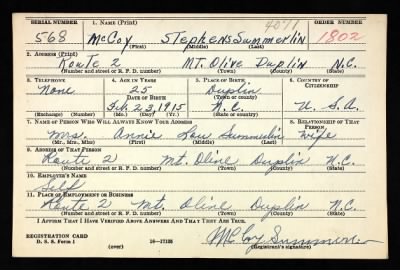 SERIAL NUMBER 1. NAME (Print) 4071 ORDER NUMBER
568 McCoy Stephens Summerlin 1802
(First) (Middle) (Last)
2. ADDRESS (Print)
Route 2 MT. Olive Duplin N.C.
(Number and street or R. F. D. number) (Town) (County) (State)
3. TELEPHONE 4. AGE IN YEARS 5. PLACE OF BIRTH 6. COUNTRY OF CITIZENSHIP
None 25 Duplin
DATE OF BIRTH (Town or county)
Feb. 23, 1915 N.C. U.S.A.
(Exchange) (Number) (Mo.) (Day) (Yr.) (State or country)
7. NAME OF PERSON WHO WILL ALWAYS KNOW YOUR ADDRESS 8. RELATIONSHIP OF THAT PERSON
Mrs. Annie Lou Summerlin Wife
(Mr., Mrs., Miss) (First) (Middle) (Last)
9. ADDRESS OF THAT PERSON
Route 2 Mt. Olive Duplin N.C.
(Number and street or R. F. D. number) (Town) (County) (State)
10. EMPLOYER'S NAME
Self
11. PLACE OF EMPLOYMENT OR BUSINESS
Route 2 Mt. Olive Duplin N.C.
(Number and street or R. F. D. number) (Town) (County) (State)
I AFFIRM THAT I HAVE VERIFIED ABOVE ANSWERS AND THAT THEY ARE TRUE.
REGISTRATION CARD
D. S. S. Form 1 (over) 16—17105 McCoy Summerlin
(Registrant's signature)